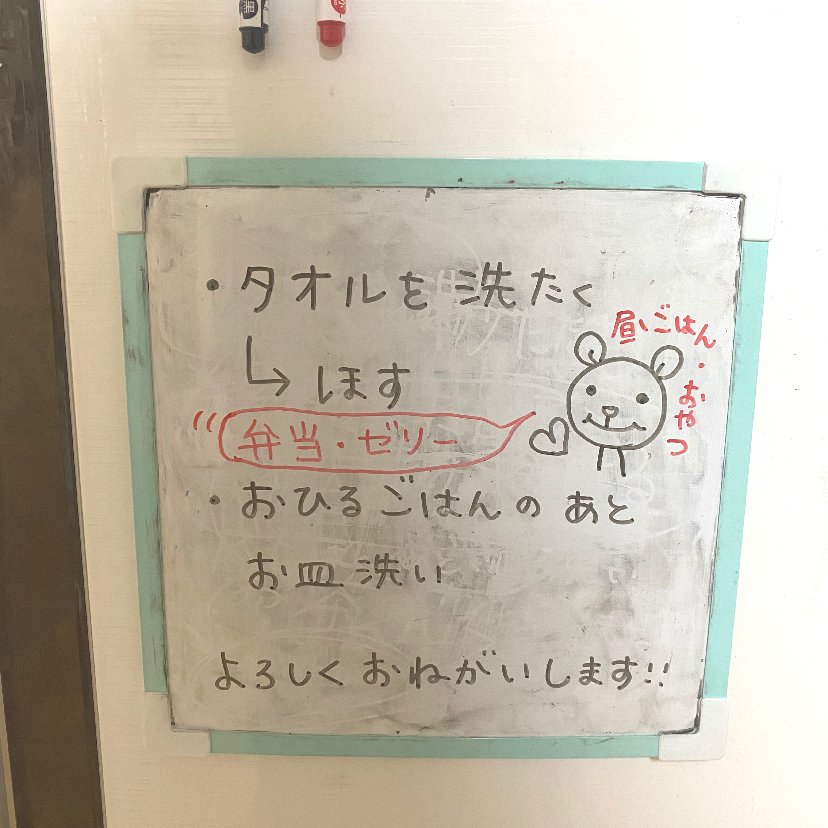 ・タオルを洗たく
↳ほす
昼ごはん・おやつ
弁当・ゼリー
・おひるごはんのあと
お皿洗い
よろしくおねがいします!!